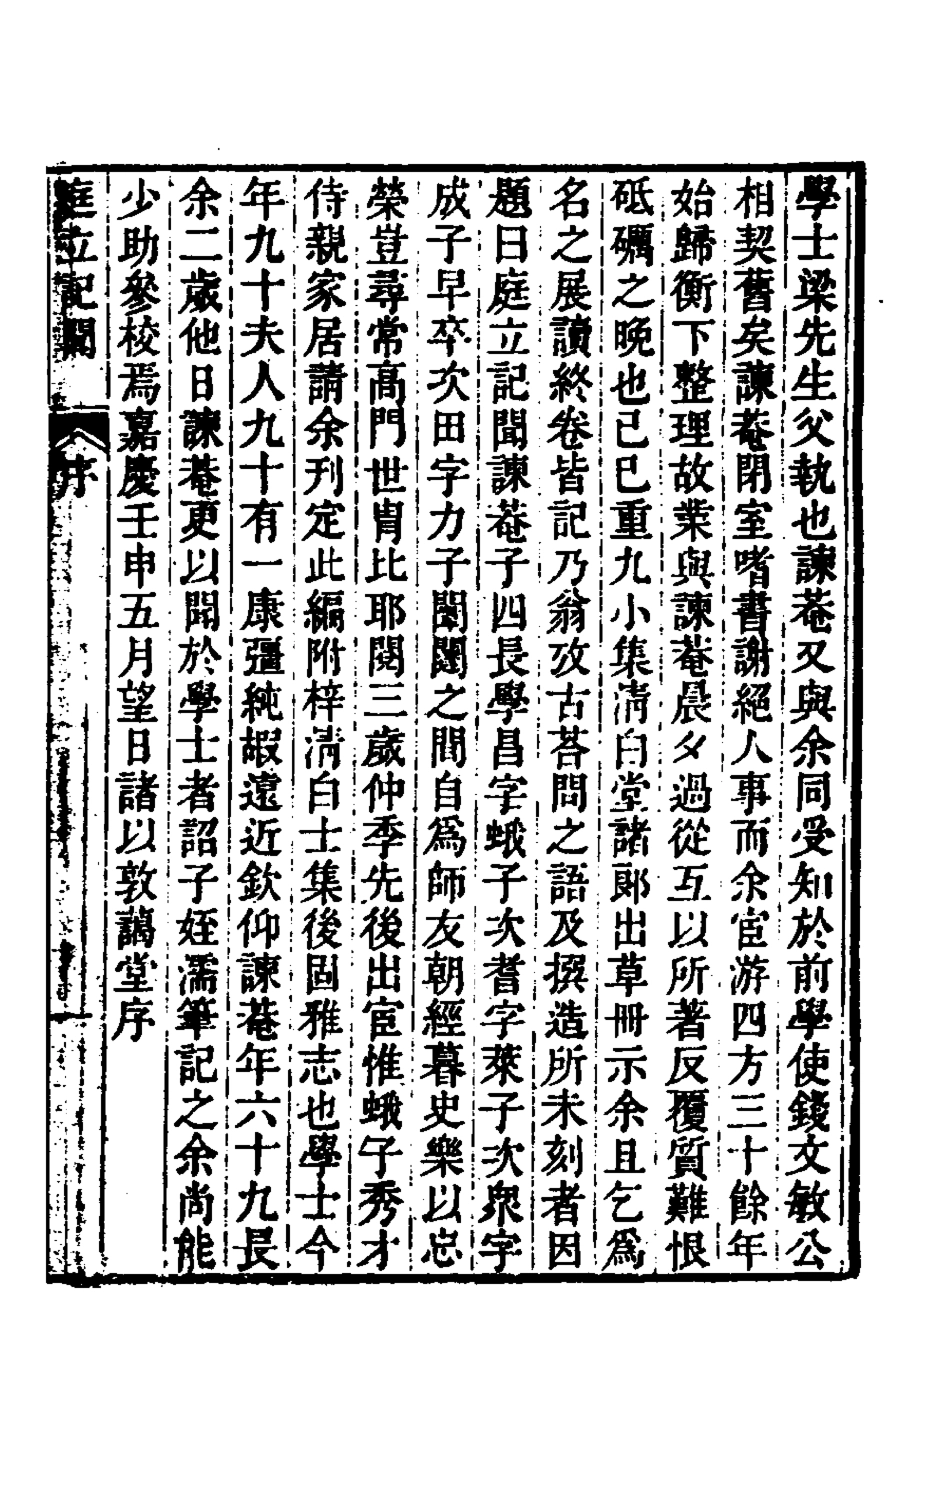 學士梁先生父執也諫菴又與余同受知於前學使錢文敏公
相契舊矣諫菴閉室嗜書謝絕人事而余宦游四方三十餘年
始歸衡下整理故業與諫菴晨夕過從互以所著反覆質難恨
砥礪之晚也已巳重九小集淸白堂諸郎出草冊示余且乞爲
名之展讀終卷皆記乃翁攷古荅問之語及撰造所未刻者因
題日庭立記聞諫菴子四長學昌字蛾子次耆字萊子次衆字
成子早卒次田字力子閨闥之間自爲師友朝經暮史樂以忘
榮豈尋常高門世胄比耶閱三歲仲季先後出宦惟蛾子秀才
侍親家居請余刊定此編附梓淸白士集後固雅志也學士今
年九十夫人九十有一康彊純嘏遠近欽仰諫菴年六十九長
余二歲他日諫菴更以聞於學士者詔子姪濡筆記之余尚能
少助參校焉嘉慶壬申五月望日諸以敦藹堂序
庭立記聞 序